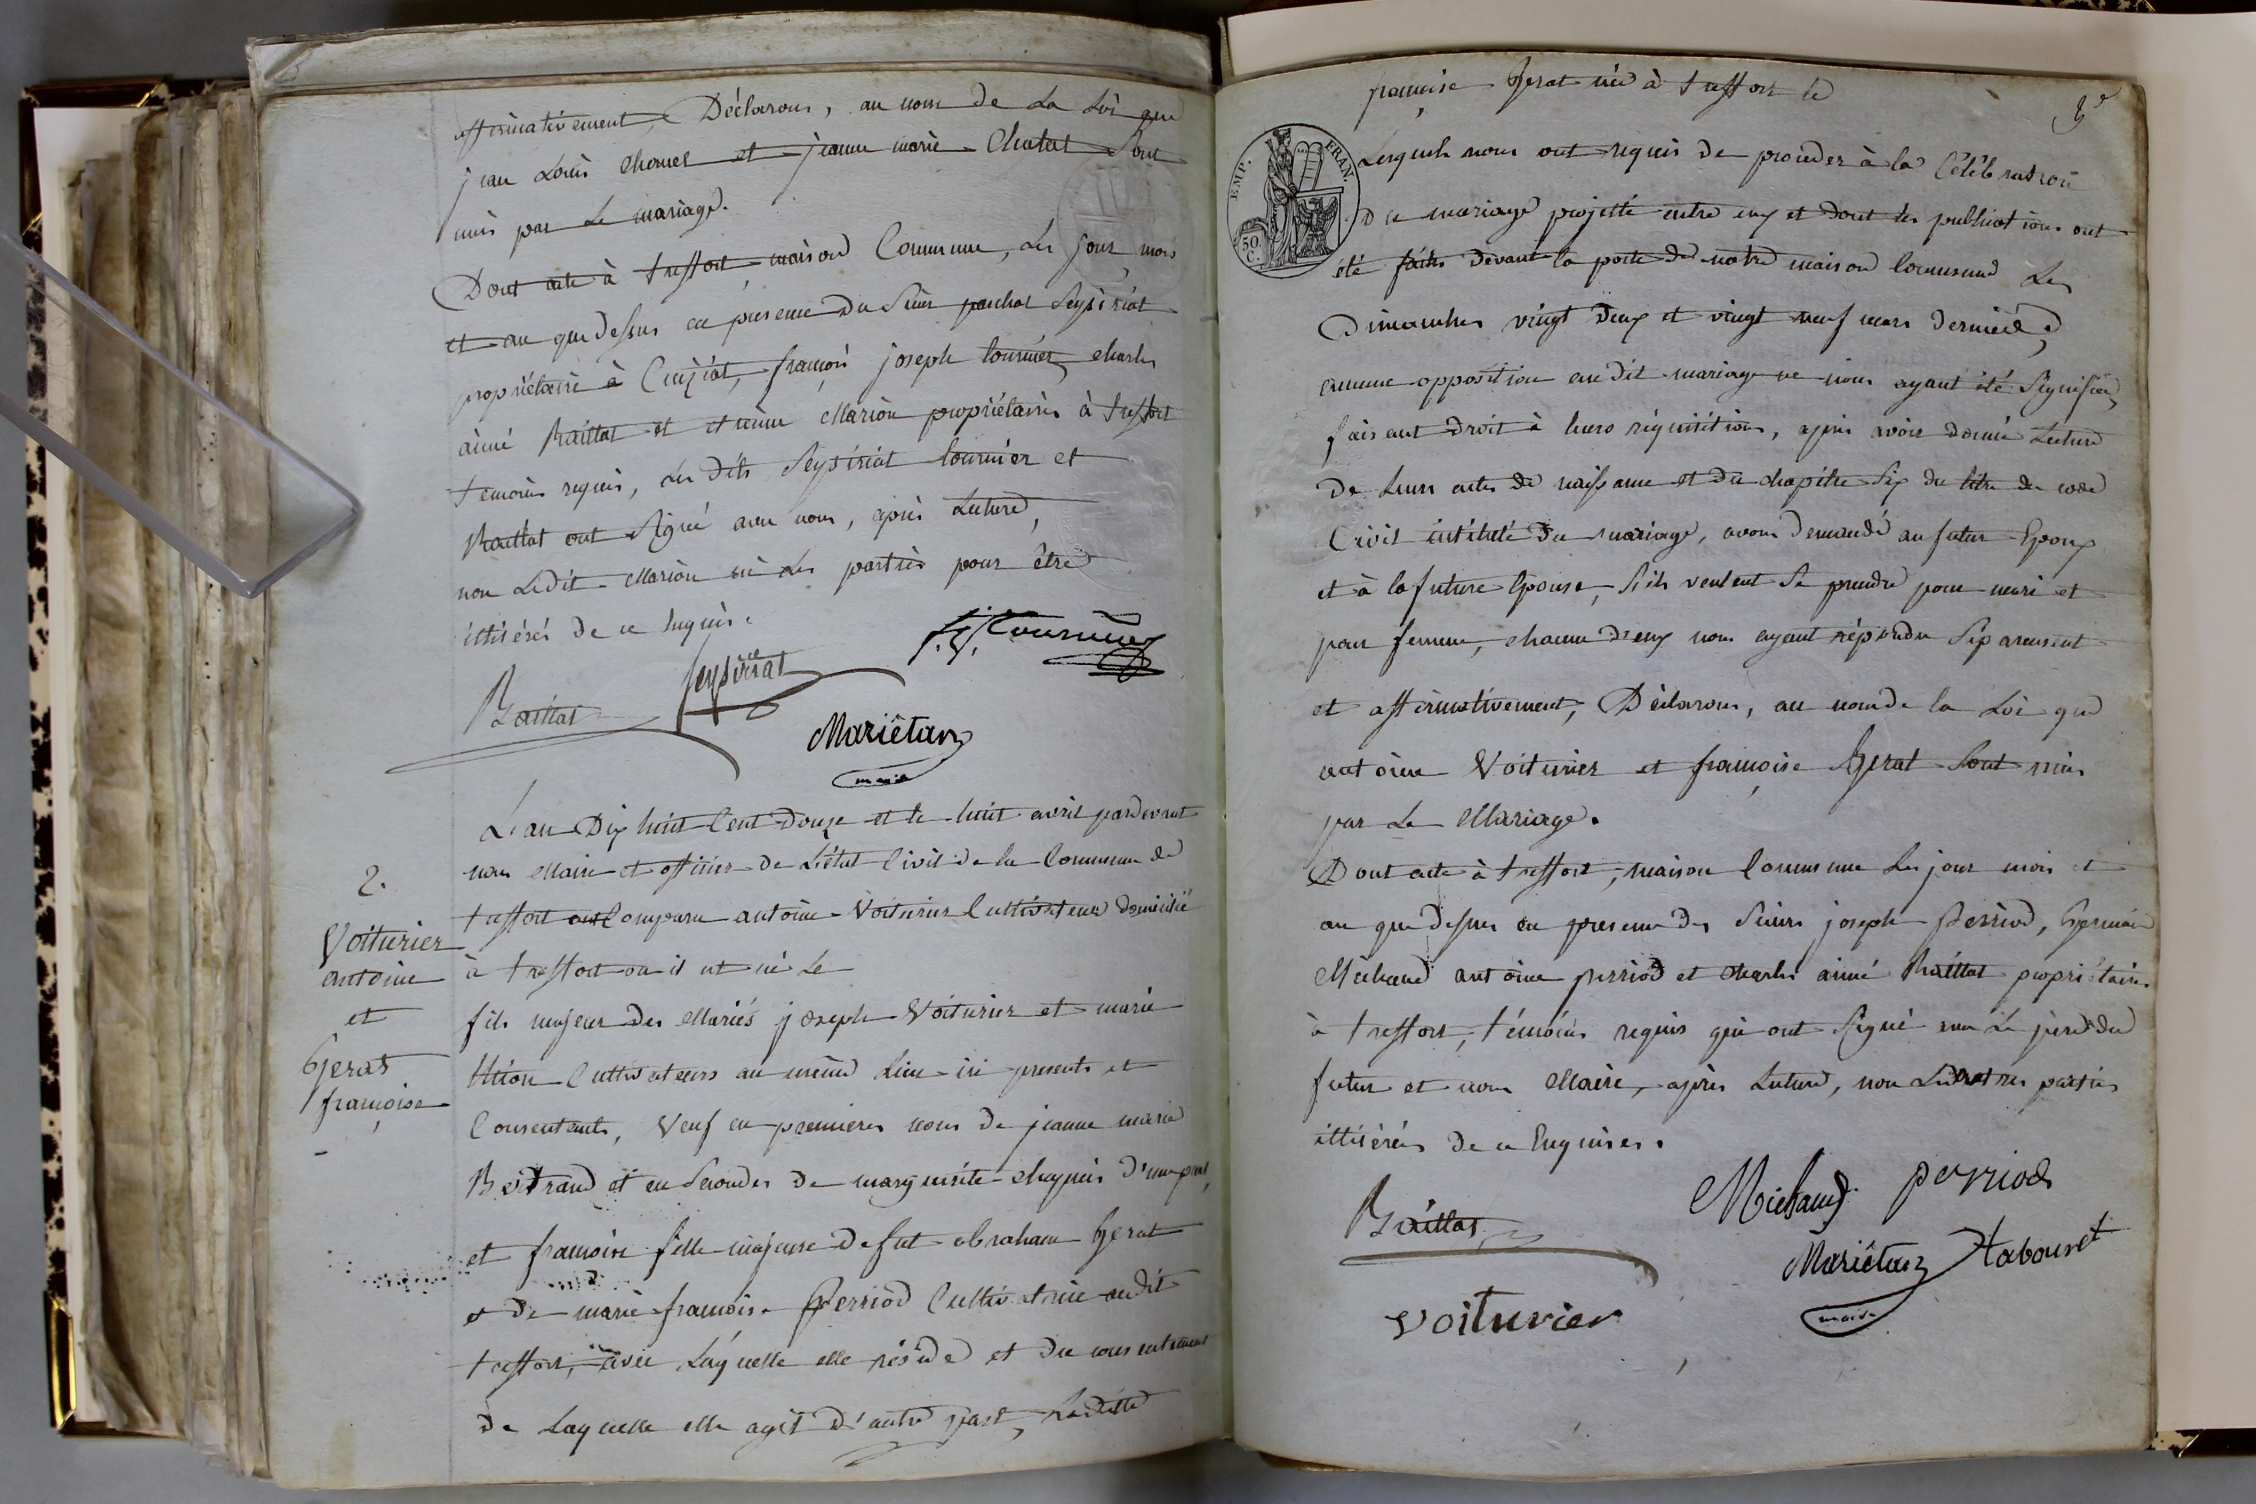 affirmativement, Déclarons, au nom de La Loi que
jean Louis Chomel et jeanne marie Chatat Sont
unis par Le mariage.
Dont acte à treffort maison Commune, Les jour, mois
et an que dessus en présence du Sieur Seysiriat
propriétaire à Cuiziat, françois joseph tournier, charles
aimé Raillat et etienne Marion propriétaires à treffort
témoins requis, Les dits Seysiriat tournier et
Raillat ont Signé avec nous, après Lecture,
non Ledit Marion ni Les parties pour être
illitérés de ce Enquis.
Raillat Seysiriat f. j. Tournier
Mariétan
maire
L'an Dix huit Cent Douze et le huit avril pardevant
nous Maire et officier de L'état Civil de la Commune de
treffort ont Comparu antoine Voiturier Cultivateur domicilié
à treffort où il est né Le
fils majeur des Mariés joseph Voiturier et marie
Cultivateurs au même Lieu ici presents et
Consentents, Veuf en premieres noces de jeanne marie
Bertrand et en Secondes de marguerite chapuis d'une part,
et francoise fille majeure de fut abraham Gerat
et de marie francoise Perriod Cultivatrice audit
treffort, avec Laquelle elle réside et du consentement
de Laquelle elle agit d'autre part, Laditte
2.
Voiturier
antoine
et
Gerat
françoise
françoise Gerat née à treffort le
Lesquels nous ont requis de proceder à la Célébration
Du mariage projetté entre eux et dont les publications ont
été faites devant la porte de notre maison Commune Les
Dimanches vingt deux et vingt neuf mars dernier,
aucune opposition audit mariage ne nous ayant été Signifiée,
faisant droit à leurs réquisitions, après avoir donné Lecture
De Leurs actes de naissance et du chapitre Six du titre du code
Civil intitulé Du mariage, avons demandé au futur Epoux
et à la future Epouse, S'ils veulent Se prendre pour mari et
pour femme, chacun d'eux nous ayant répondu Séparement
et affirmativement, Déclarons, au nom de la Loi que
antoine Voiturier et françoise Gerat Sont unis
par Le Mariage.
Dont acte à treffort, maison Commune Les jour mois et
an que dessus en presence des Sieurs joseph Perriod, Germain
Michaud antoine perriod et Charles aimé Raillat propriétaires
à treffort, témoins requis qui ont Signé avec Le père du
futur et nous Maire, après Lecture, non Les autres parties
illitérées de ce Enquises.
Raillat Michaud perriod
Mariétan tabouret
maire
voiturier
EMP. FRAN.
50.
C.